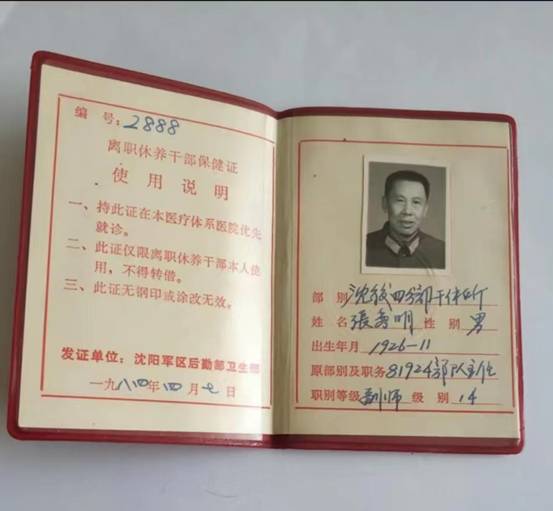 编号:2888
离职休养干部保健证
使用说明
一、持此证在本医疗体系医院优先
就诊。
二、此证仅限离职休养干部本人使
用，不得转借。
三、此证无钢印或涂改无效。
发证单位：沈阳军区后勤部卫生部
一九八四年四月七日
部别 沈后四分部干休所
姓名 张秀明 性别 男
出生年月 1926-11
原部别及职务 81924部队主任
职别等级 副师 级别 14